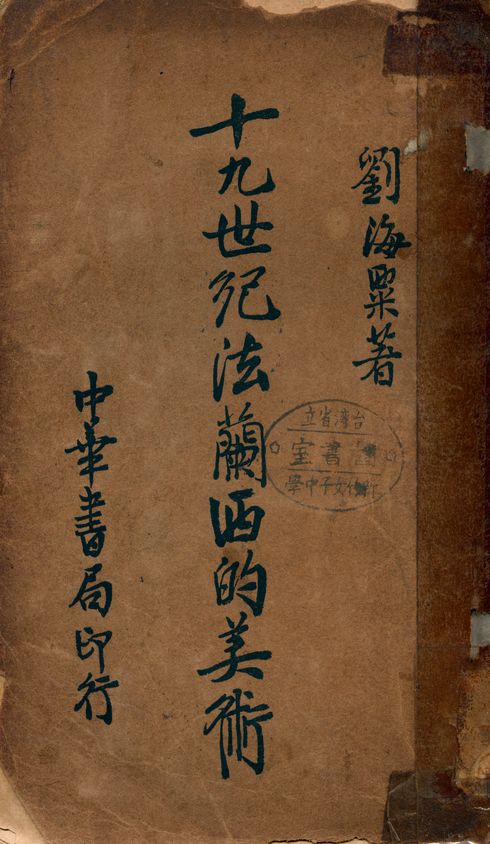 劉海粟著
十九世紀法蘭西的美術
中華書局印行
台灣省立
圖書室
彰化女子中學